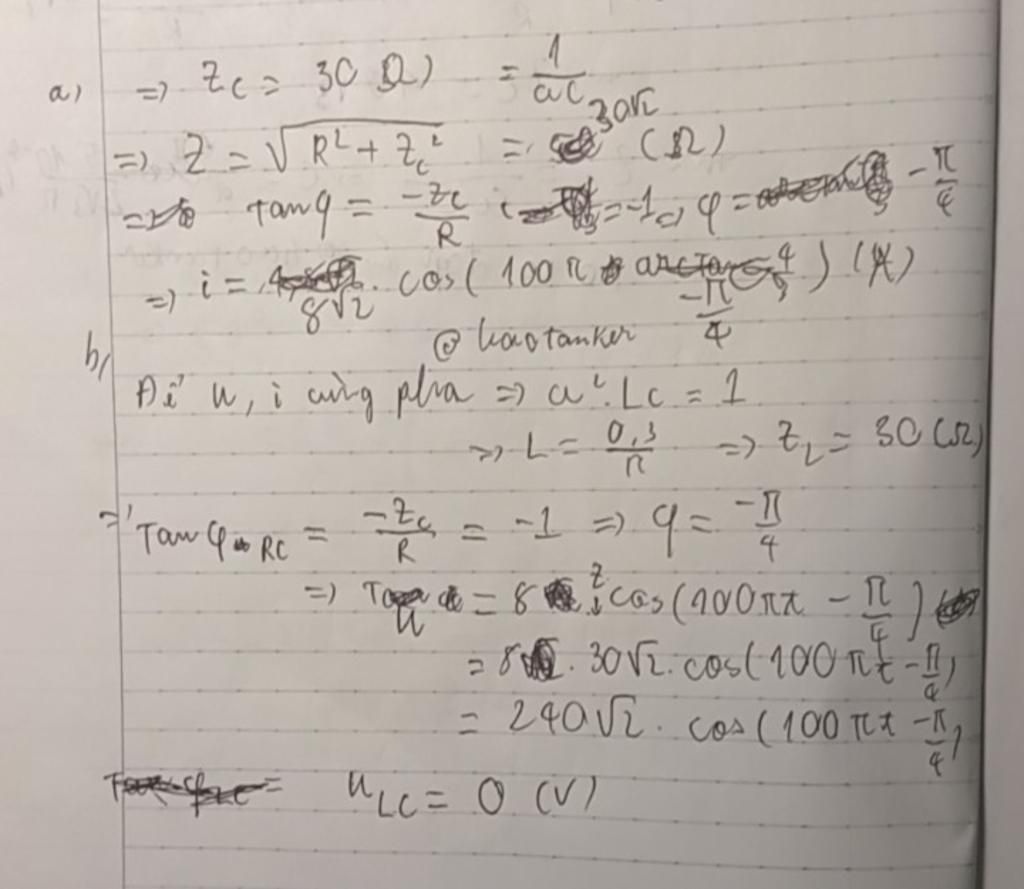 a) => Z_C = 30 Ω) = 1/ωC
=> Z = √(R² + Z_C²) = 30√2 (Ω)
=> Tanφ = -Z_C/R = -1 => φ = -π/4
=> i = 8√2 . cos(100π -π/4) (A)
@ haotanker
b,
Để u, i cùng pha => ω².LC = 1
=> L = 0,3/π => Z_L = 30 (Ω)
=> Tanφ RC = -Z_C/R = -1 => φ = -π/4
=> u = 8 . Z cos(100πt - π/4)
= 8 . 30√2 . cos(100πt - π/4)
= 240√2 . cos(100πt - π/4)
u_LC = 0 (V)